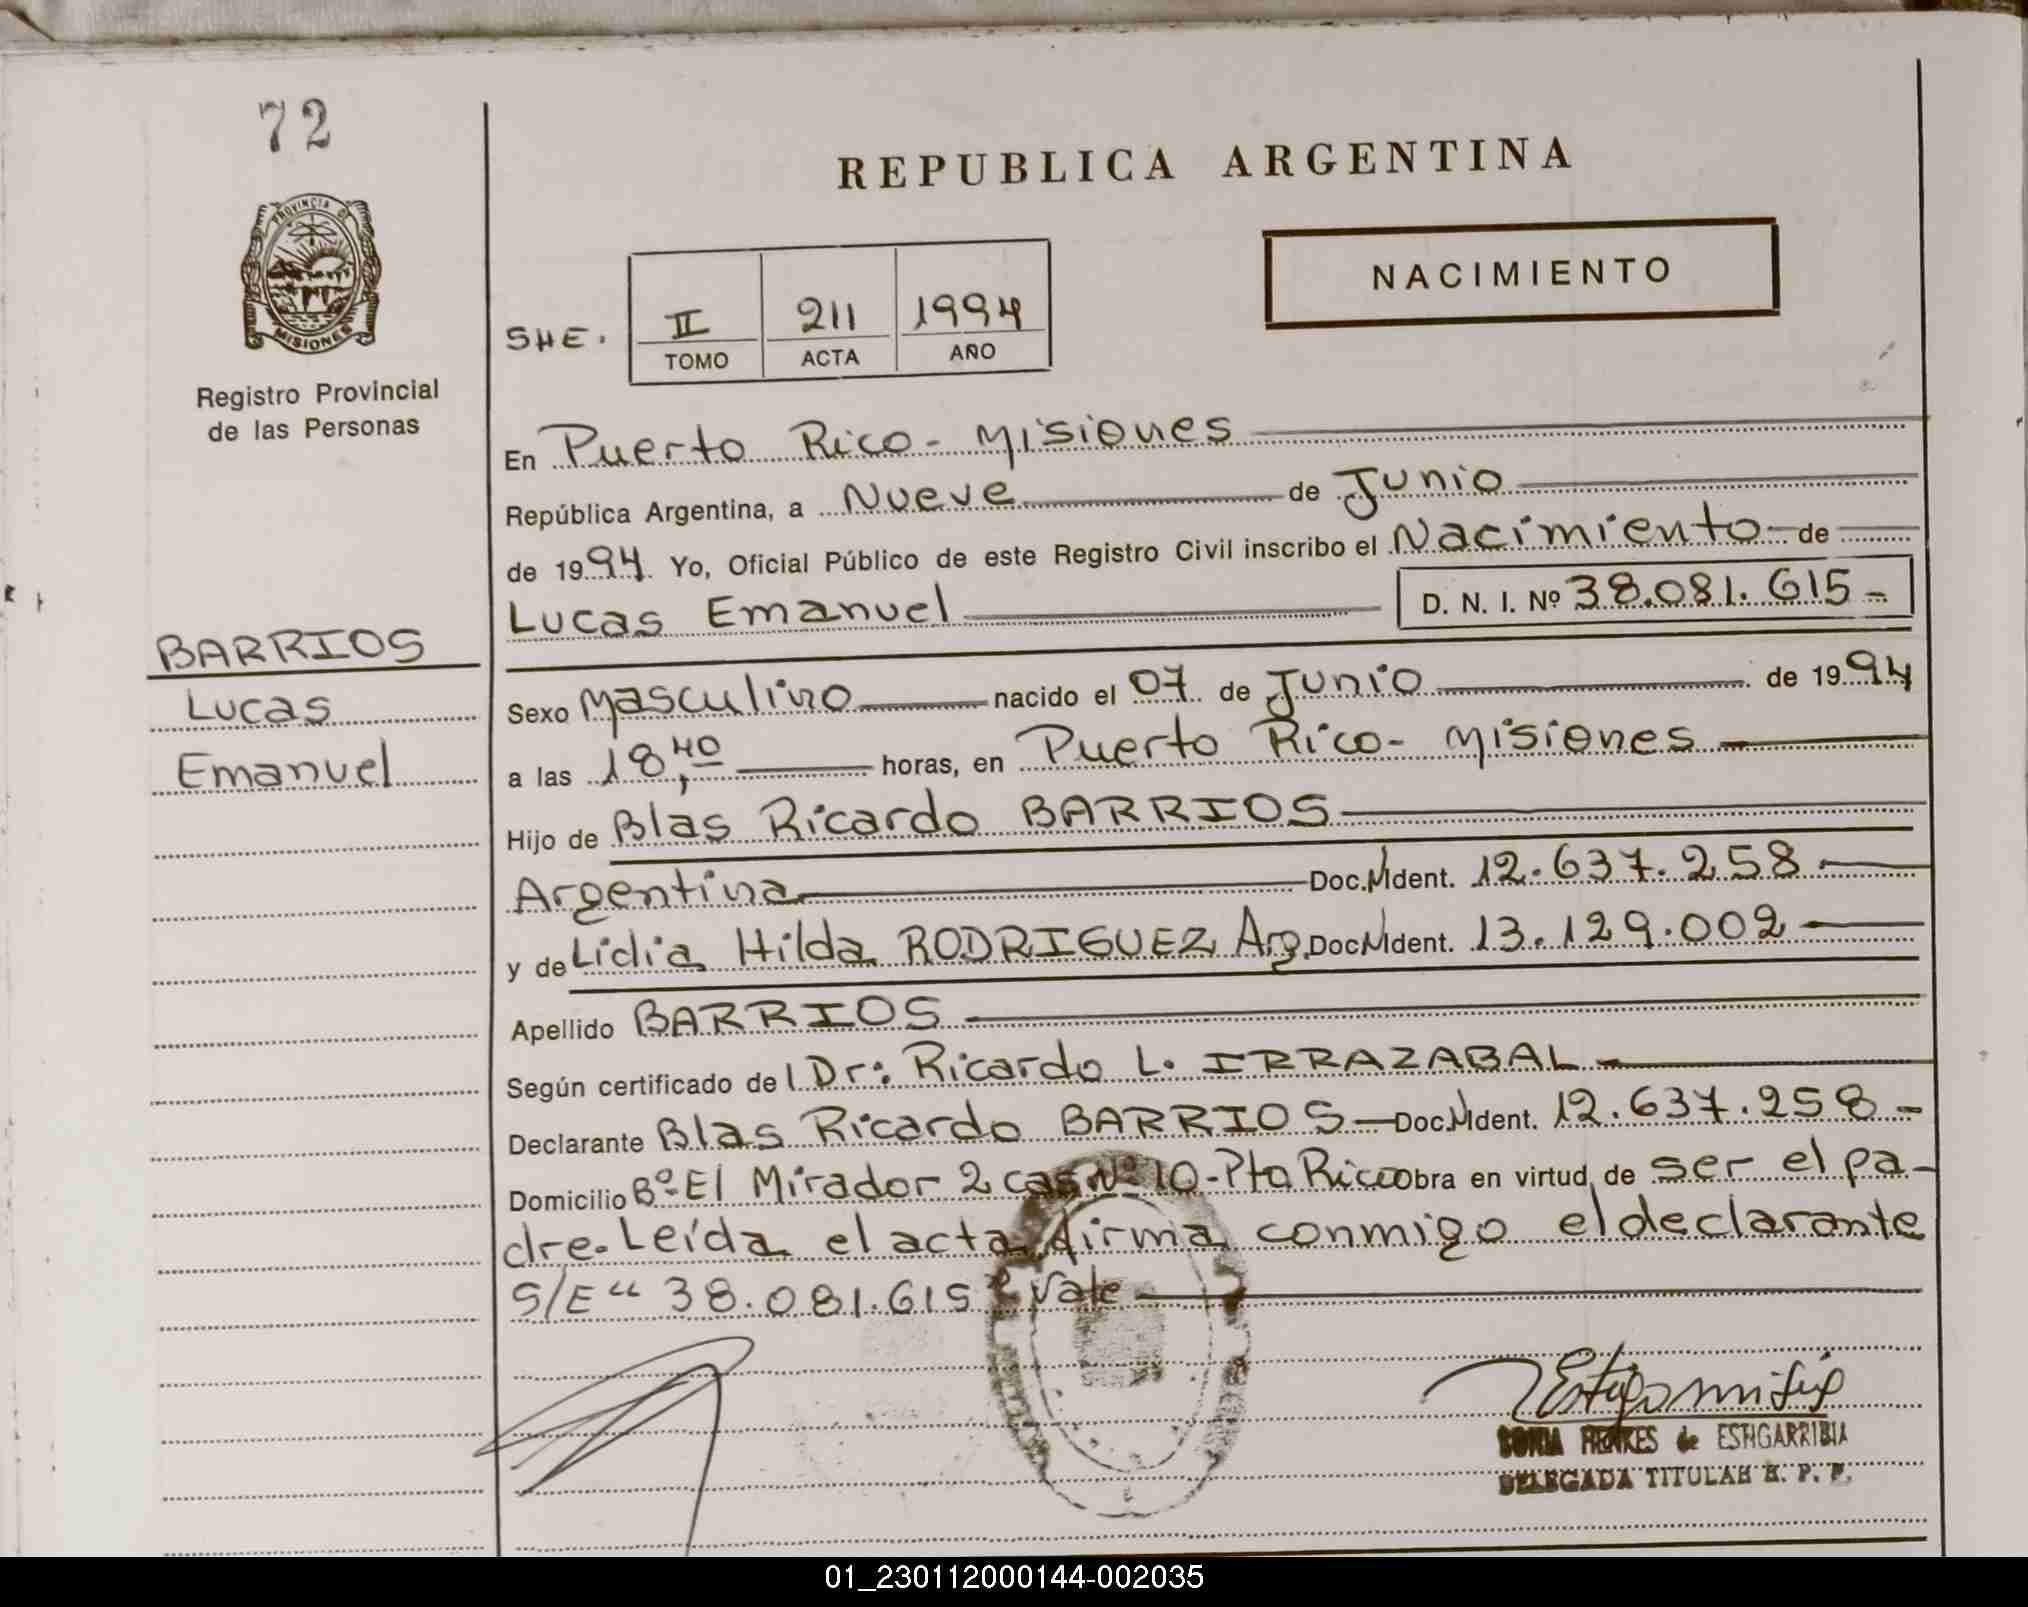 72
REPUBLICA ARGENTINA
PROVINCIA DE
MISIONES
NACIMIENTO
SHE. II 211 1994
TOMO ACTA AÑO
Registro Provincial
de las Personas
En Puerto Rico - Misiones
República Argentina, a Nueve de Junio
de 1994. Yo, Oficial Público de este Registro Civil inscribo el Nacimiento de
Lucas Emanuel D. N. I. Nº 38.081.615-
BARRIOS
Lucas
Emanuel
Sexo Masculino nacido el 07 de Junio de 1994
a las 18,40 horas, en Puerto Rico - Misiones
Hijo de Blas Ricardo BARRIOS
Argentina Doc. Ident. 12.637.258
y de Lidia Hilda RODRIGUEZ Arg. Doc. Ident. 13.129.002
Apellido BARRIOS
Según certificado del Dr: Ricardo L. IRRAZABAL
Declarante Blas Ricardo BARRIOS - Doc. Ident. 12.637.258 -
Domicilio Bº El Mirador 2 cas Nº 10 - Pto Rico obra en virtud de ser el pa-
dre. Leída el acta firma conmigo el declarante
S/E " 38.081.615 " Vale
SONIA HENKES de ESTIGARRIBIA
DELEGADA TITULAR R. P. P.
01_230112000144-002035